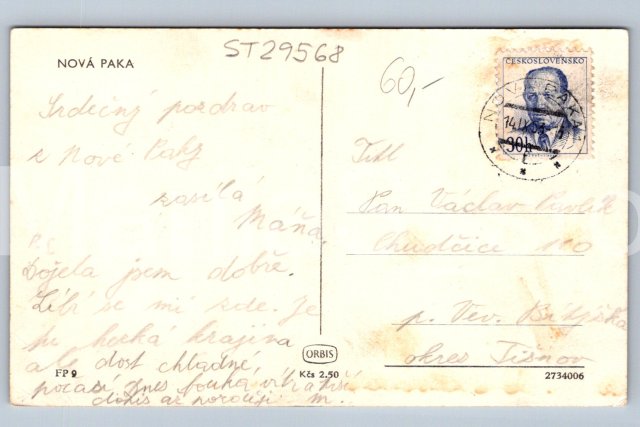 ST29568
NOVÁ PAKA
60,-
ČESKOSLOVENSKO
NOVÁ PAKA
14.IX.53
30h
Srdečný pozdrav
z Nové Paky
zasílá
Máňa.
P.S.
Dojela jsem dobře.
Líbí se mi zde. Je
hezká krajina
ale dost chladné,
počasí dnes fouká vítr
dopis až později M.
Titl
Pan Václav Pavlík
Chudčice 110
p. Vev. Bítýška
okres Tišnov
ORBIS
FP 9
Kčs 2.50
2734006